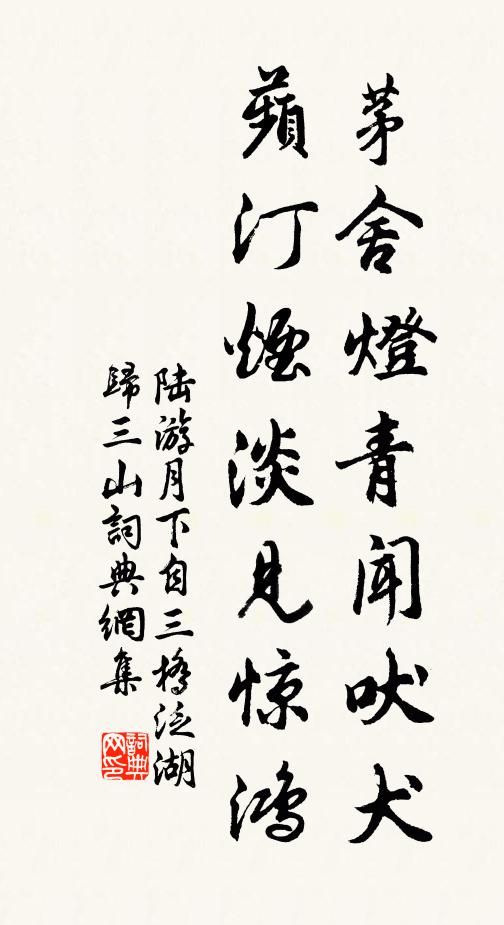 茅舍燈青闻吠犬
蘋汀煙淡見惊鸿
陆游月下自三橋泛湖
歸三山詞典網集
詞典网印